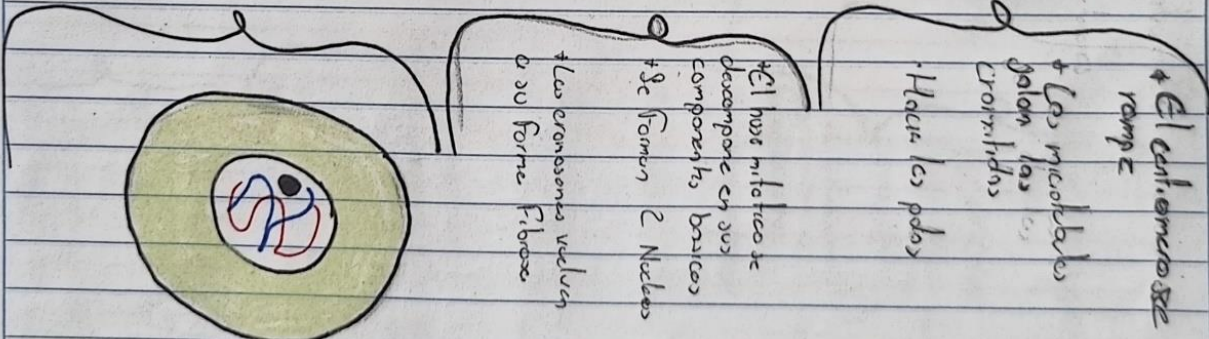 * El centromero se
rompe
+ Los microtubulos
jalan las
cromatidas
. Hacia los polos
*El huso mitotico se
descompone en sus
componentes basicos
+Se Forman 2 Nucleos
+Los cromosomas vuelven
a su Forma Fibrosa